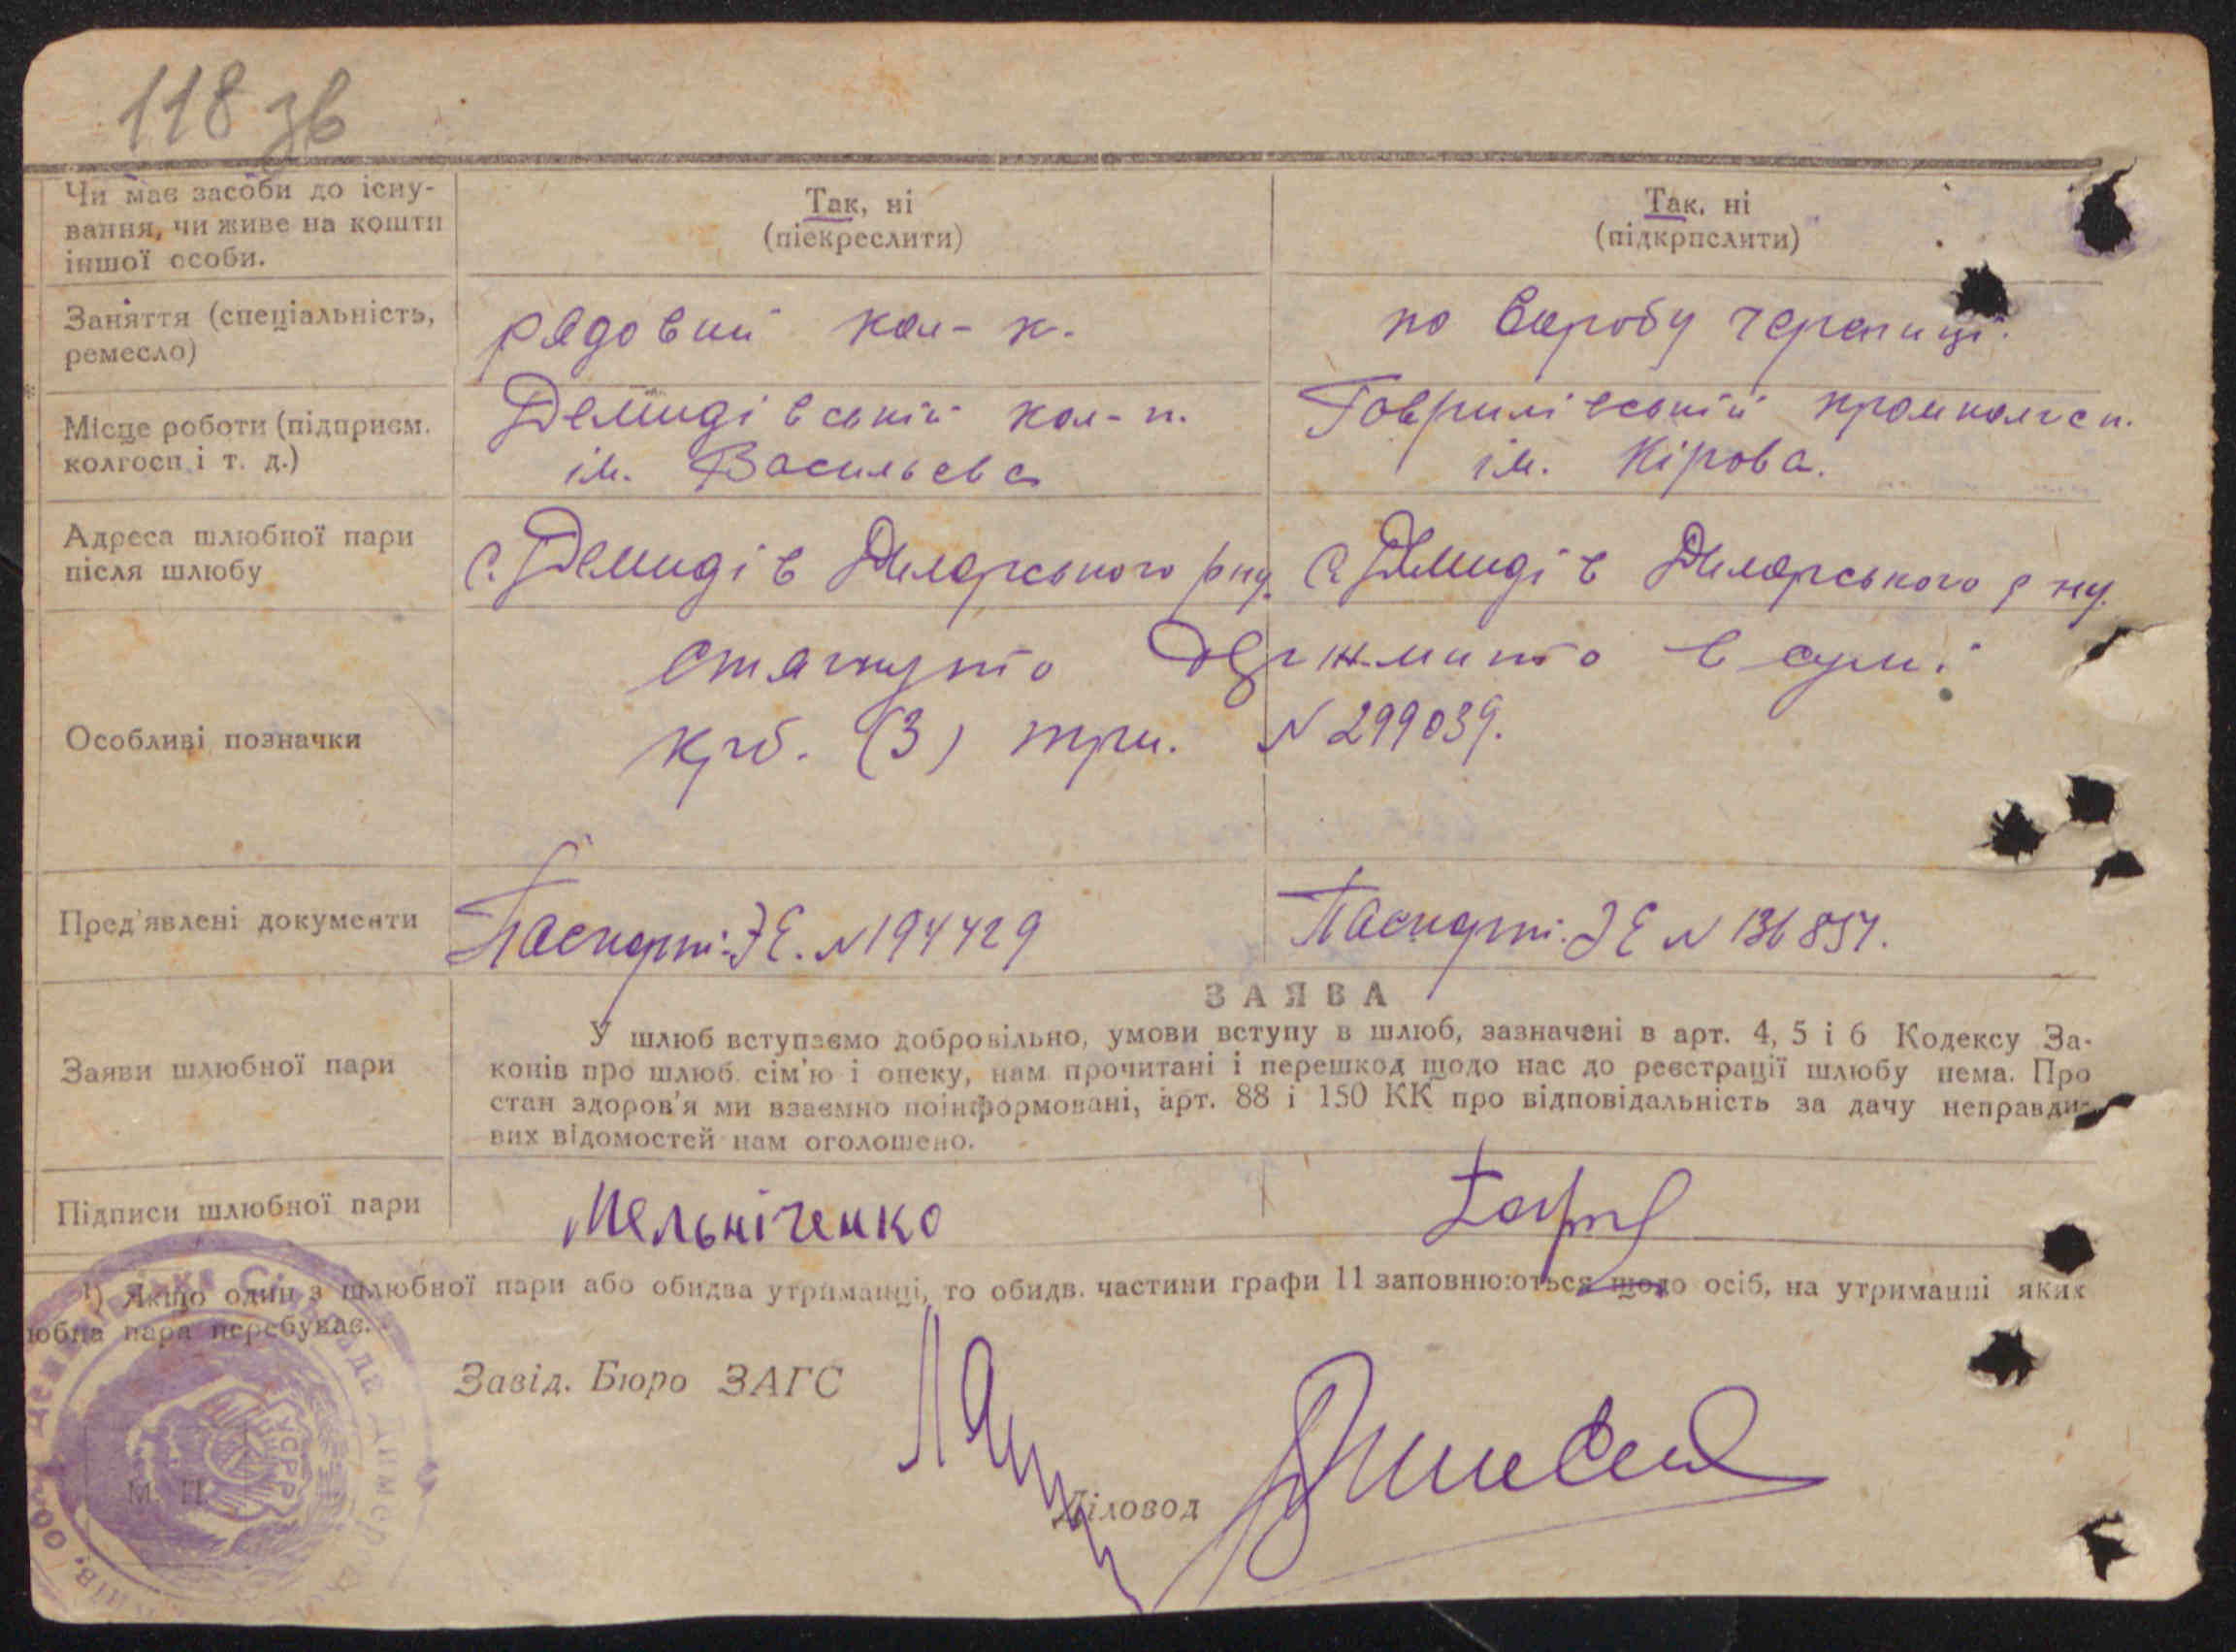 118 зв
Чи має засоби до існу-
вання, чи живе на кошти
іншої особи.
Так, ні
(піекреслити)
Так, ні
(підкрпслити)
Заняття (спеціальність,
ремесло)
рядовий кол-к.
по виробу черепиці.
Місце роботи (підприєм.
колгосп і т. д.)
Демидівській кол-п.
ім. Васильева
Гаврилівській промколгсп.
ім. Кірова.
Адреса шлюбної пари
після шлюбу
с. Демидів Димерського рну.
с. Демидів Димерського р ну.
Особливі позначки
стягнуто держмито в сумі
крб. (3) три. N 299039.
Пред'явлені документи
Паспорт: ЭЕ. N 194429
Паспорт. ЭЕ N 136857.
Заяви шлюбної пари
ЗАЯВА
У шлюб вступаємо добровільно, умови вступу в шлюб, зазначені в арт. 4, 5 і 6 Кодексу За-
конів про шлюб. сім'ю і опеку, нам прочитані і перешкод щодо нас до реєстрації шлюбу нема. Про
стан здоров'я ми взаємно поінформовані, арт. 88 і 150 КК про відповідальність за дачу неправди-
вих відомостей нам оголошено.
Підписи шлюбної пари
Мельніченко
¹) Якщо один з шлюбної пари або обидва утриманці, то обидв. частини графи 11 заповнюються щодо осіб, на утриманні яких
юбна пара перебуває.
Завід. Бюро ЗАГС
Діловод
М. П.
УСРР